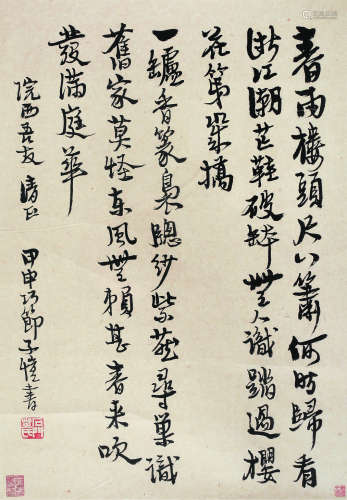 春雨樓頭尺八簫何時歸看
浙江潮芒鞋破缽無人識踏過櫻
花第幾橋
一罏香篆裊牕紗紫燕尋巢識
舊家莫怪東風無賴甚春來吹
發滿庭華
院西吾友 清正
甲申巧節子愷書